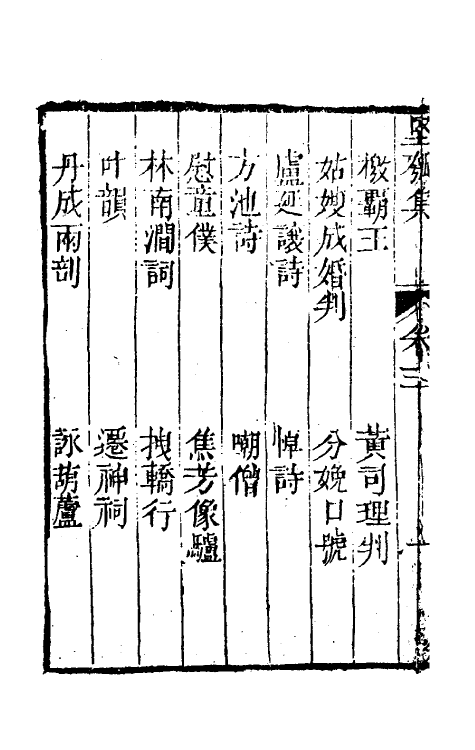 堅瓠集
卷三
檄霸王 黃司理判
姑嫂成婚判 分娩口號
盧延讓詩 悼詩
方池詩 嘲僧
慰童僕 焦芳像驢
林南澗詞 拽轎行
叶韻 遷神祠
丹成兩剖 詠葫蘆